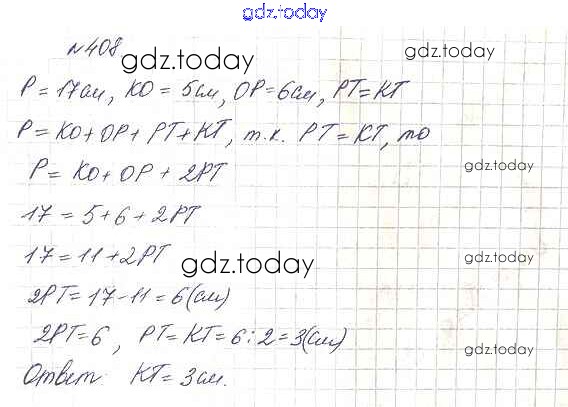 gdz.today
№408
gdz.today
gdz.today
P = 17см, KO = 5см, OP = 6см, PT = KT
P = KO + OP + PT + KT, т.к. PT = KT, то
gdz.today
P = KO + OP + 2PT
17 = 5 + 6 + 2PT
17 = 11 + 2PT
gdz.today
gdz.today
2PT = 17 - 11 = 6(см)
2PT = 6, PT = KT = 6 : 2 = 3(см)
gdz.today
Ответ KT = 3см.